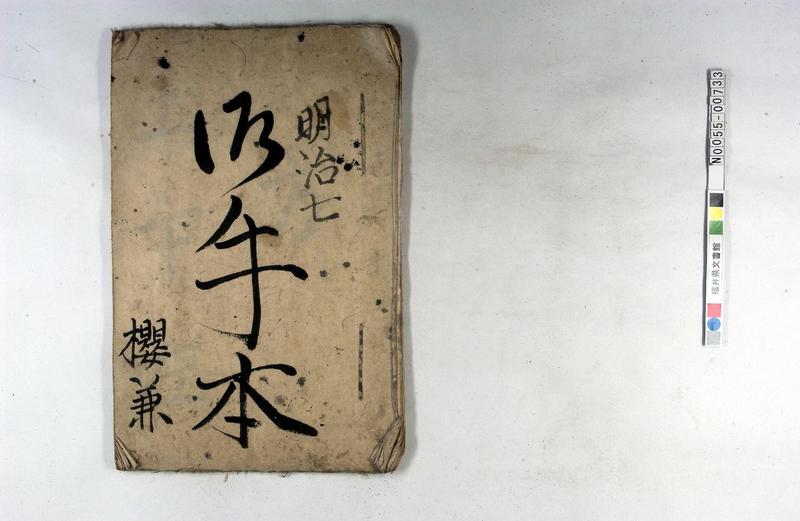 明治七
御手本
櫻兼
N0055-00733
福井県文書館